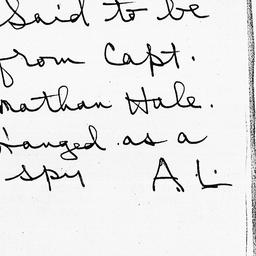 Said to be
from Capt.
nathan Hale.
Hanged as a
spy A. L.